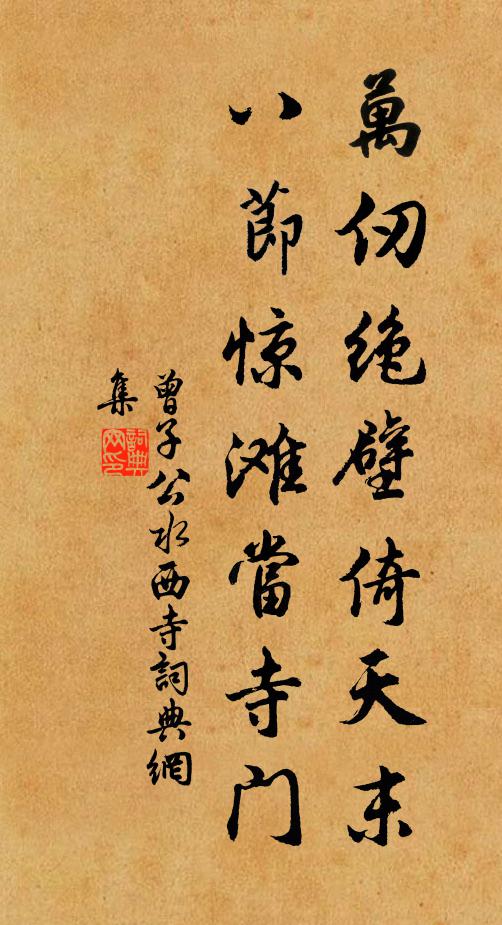 萬仞绝壁倚天末
八節惊滩當寺门
曾子公水西寺詞典網
集
詞典网印